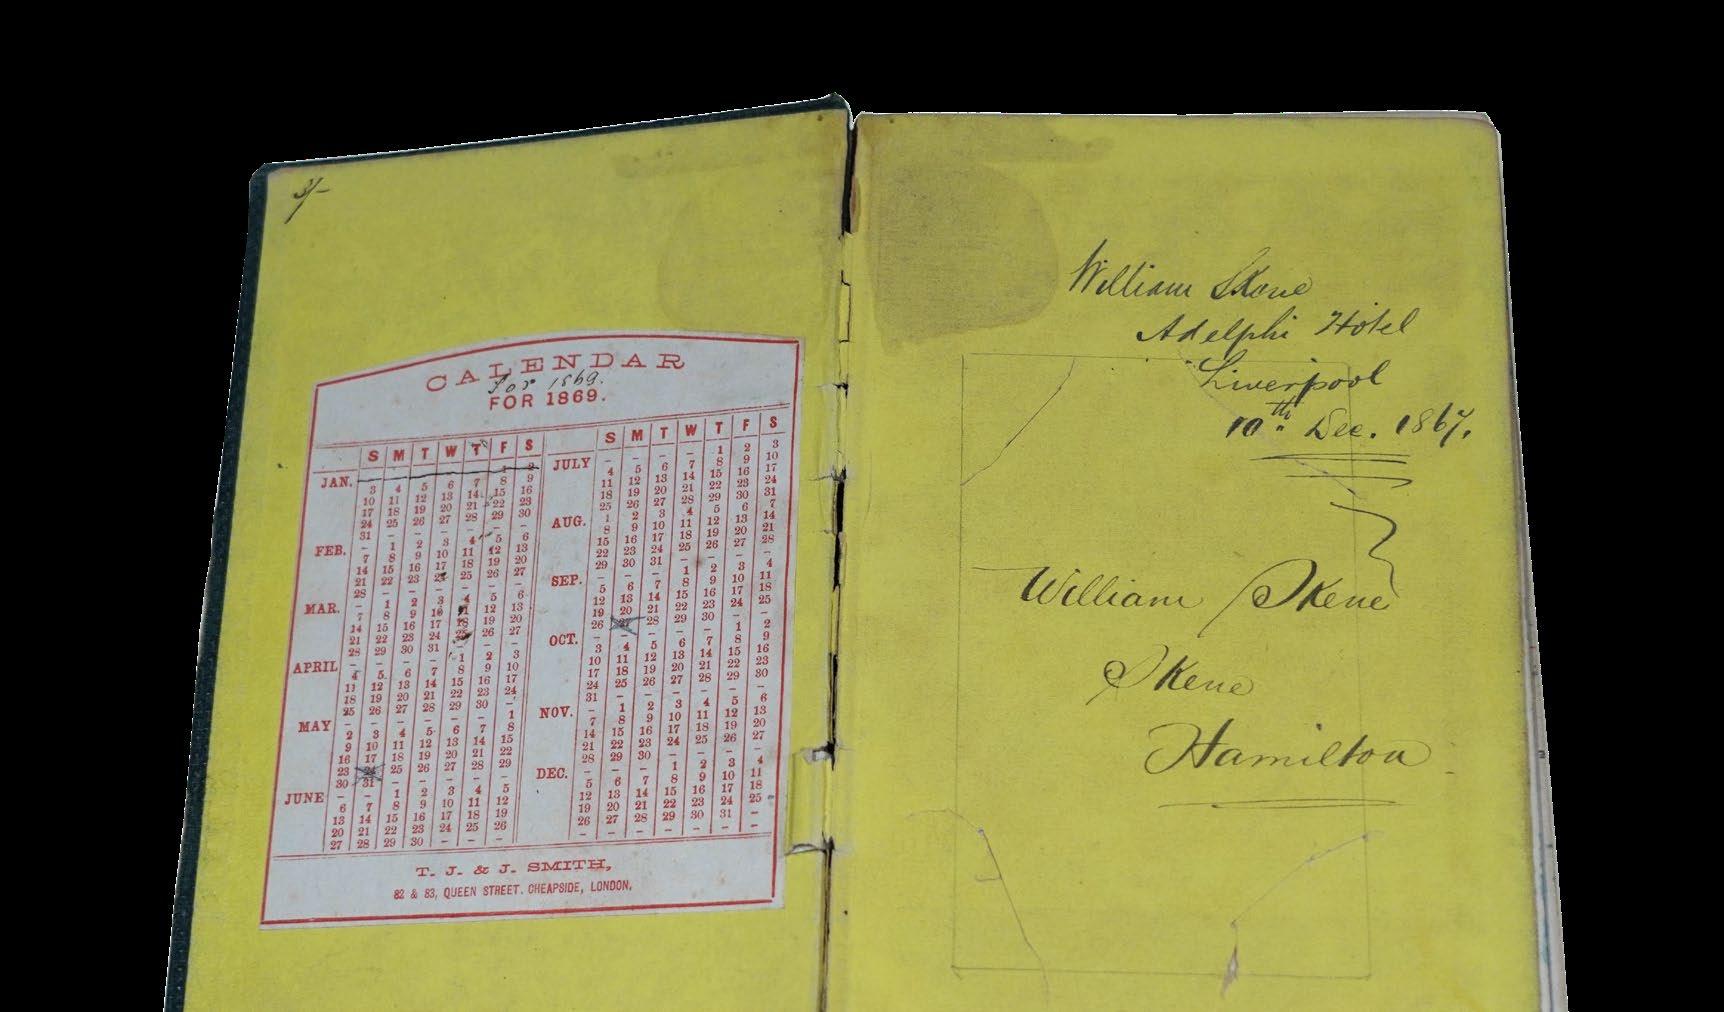 3/-
CALENDAR
For 1869.
FOR 1869.
S M T W T F S
JAN. - - - - - 1 2
3 4 5 6 7 8 9
10 11 12 13 14 15 16
17 18 19 20 21 22 23
24 25 26 27 28 29 30
31 - - - - - -
FEB. - 1 2 3 4 5 6
7 8 9 10 11 12 13
14 15 16 17 18 19 20
21 22 23 24 25 26 27
28 - - - - - -
MAR. - 1 2 3 4 5 6
7 8 9 10 11 12 13
14 15 16 17 18 19 20
21 22 23 24 25 26 27
28 29 30 31 - - -
APRIL - - - - 1 2 3
4 5 6 7 8 9 10
11 12 13 14 15 16 17
18 19 20 21 22 23 24
25 26 27 28 29 30 -
MAY - - - - - - 1
2 3 4 5 6 7 8
9 10 11 12 13 14 15
16 17 18 19 20 21 22
23 24 25 26 27 28 29
30 31 - - - - -
JUNE - - 1 2 3 4 5
6 7 8 9 10 11 12
13 14 15 16 17 18 19
20 21 22 23 24 25 26
27 28 29 30 - - -
S M T W T F S
JULY - - - - 1 2 3
4 5 6 7 8 9 10
11 12 13 14 15 16 17
18 19 20 21 22 23 24
25 26 27 28 29 30 31
AUG. 1 2 3 4 5 6 7
8 9 10 11 12 13 14
15 16 17 18 19 20 21
22 23 24 25 26 27 28
29 30 31 - - - -
SEP. - - - 1 2 3 4
5 6 7 8 9 10 11
12 13 14 15 16 17 18
19 20 21 22 23 24 25
26 27 28 29 30 - -
OCT. - - - - - 1 2
3 4 5 6 7 8 9
10 11 12 13 14 15 16
17 18 19 20 21 22 23
24 25 26 27 28 29 30
31 - - - - - -
NOV. - 1 2 3 4 5 6
7 8 9 10 11 12 13
14 15 16 17 18 19 20
21 22 23 24 25 26 27
28 29 30 - - - -
DEC. - - - 1 2 3 4
5 6 7 8 9 10 11
12 13 14 15 16 17 18
19 20 21 22 23 24 25
26 27 28 29 30 31 -
- - - - - - -
T. J. & J. SMITH,
82 & 83, QUEEN STREET. CHEAPSIDE, LONDON.
William Skene
Adelphi Hotel
Liverpool
10th Dec. 1867.
William Skene
Skene
Hamilton